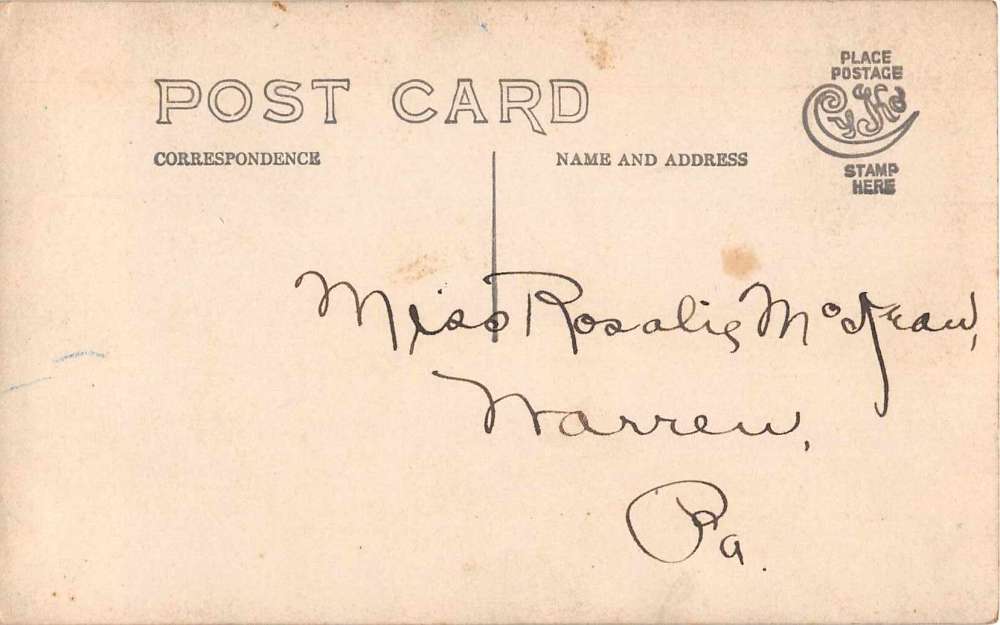 POST CARD
CORRESPONDENCE
NAME AND ADDRESS
PLACE
POSTAGE
CyKo
STAMP
HERE
Miss Rosalie McKean,
Warren,
Pa.